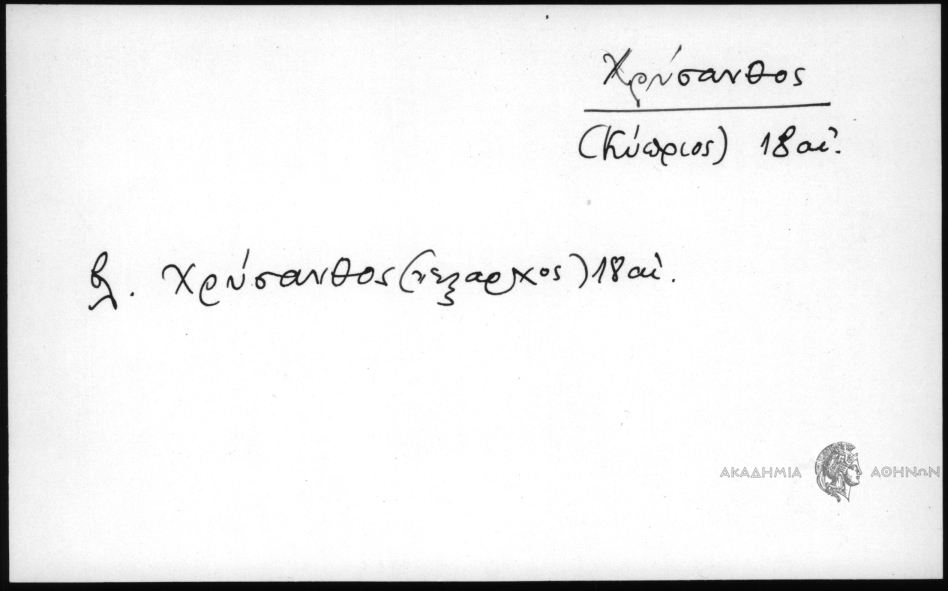 Χρύσανθος
(Κύπριος) 18 αἰ.
βλ. Χρύσανθος (ἔξαρχος) 18 αἰ.
ΑΚΑΔΗΜΙΑ ΑΘΗΝΩΝ